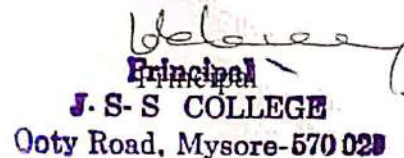 Principal
Principal
J. S- S COLLEGE
Ooty Road, Mysore-570 02